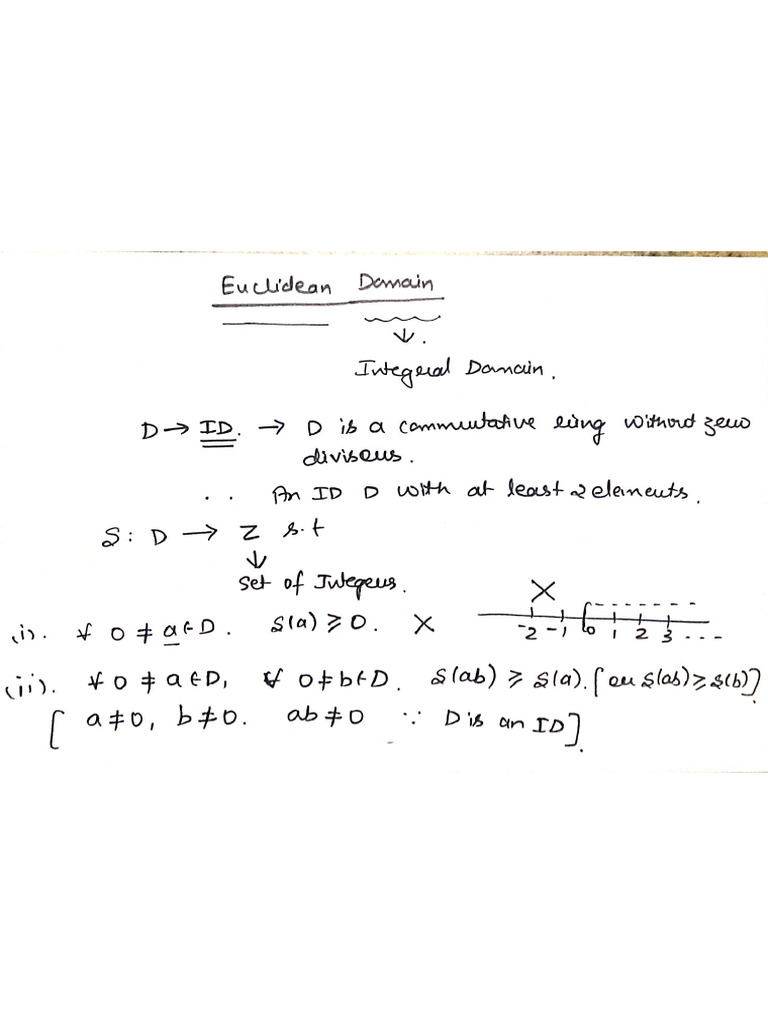 Euclidean Domain
↓.
Integral Domain.
D → ID. → D is a commutative ring without zero
divisors.
. . An ID D with at least 2 elements.
S : D → Z s.t
↓
set of Integers.
(i). ∀ 0 ≠ a ∈ D. S(a) ≥ 0. X
X
-2 -1 0 1 2 3 ...
(ii). ∀ 0 ≠ a ∈ D, ∀ 0 ≠ b ∈ D. S(ab) ≥ S(a). [or S(ab) ≥ S(b)].
[ a ≠ 0, b ≠ 0. ab ≠ 0 ∵ D is an ID].